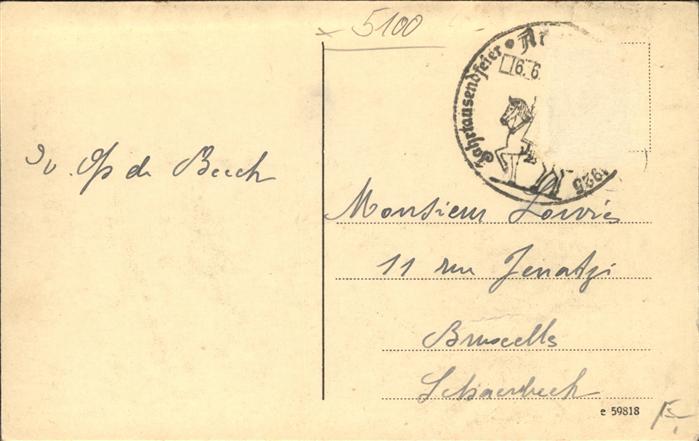 5100
Jahrtausendfeier
6.6.
1925
Op de Beech
Monsieur
11 rue Jenatzi
Bruxelles
Schaerbeek
e 59818